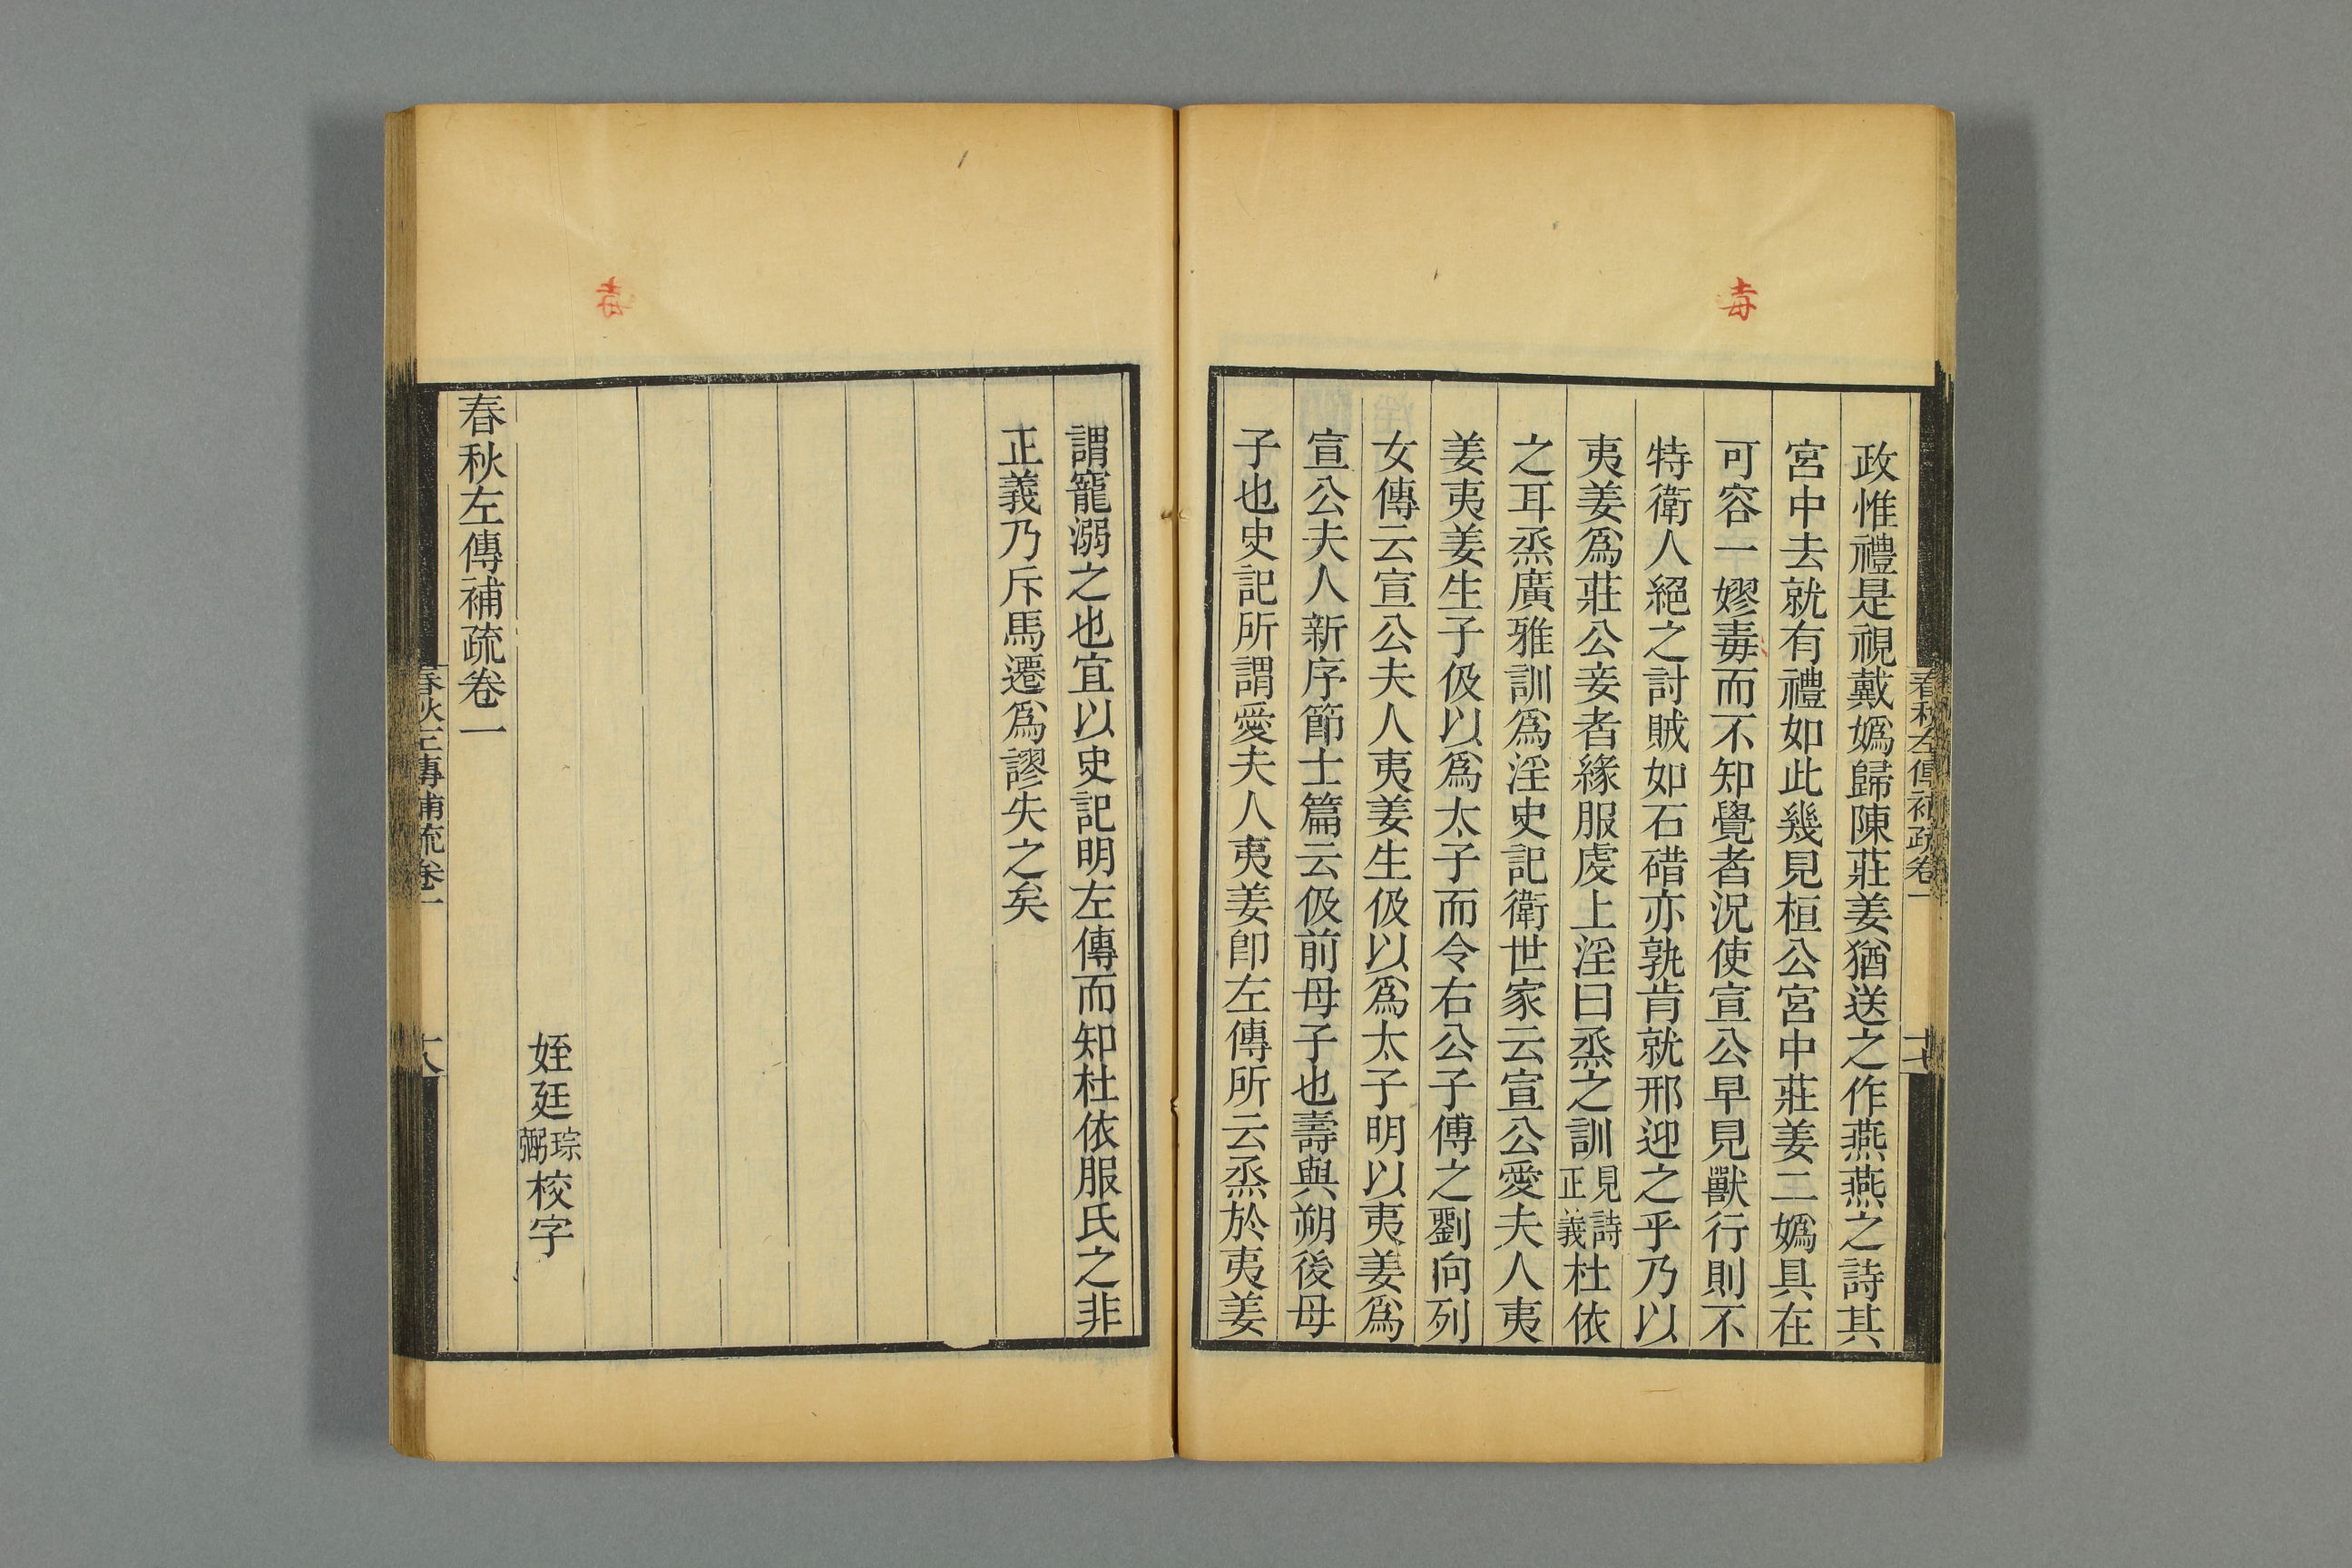 毒
春秋左傳補疏卷一
十七
政惟禮是視戴嬀歸陳莊姜猶送之作燕燕之詩其
宮中去就有禮如此幾見桓公宮中莊姜二嬀具在
可容一嫪毐而不知覺者況使宣公早見獸行則不
特衛人絕之討賊如石碏亦孰肯就邢迎之乎乃以
夷姜爲莊公妾者緣服虔上淫曰烝之訓見詩正義杜依
之耳烝廣雅訓爲淫史記衛世家云宣公愛夫人夷
姜夷姜生子伋以爲太子而令右公子傅之劉向列
女傳云宣公夫人夷姜生伋以爲太子明以夷姜爲
宣公夫人新序節士篇云伋前母子也壽與朔後母
子也史記所謂愛夫人夷姜卽左傳所云烝於夷姜
謂寵溺之也宜以史記明左傳而知杜依服氏之非
正義乃斥馬遷爲謬失之矣
姪廷琮弼校字
春秋左傳補疏卷一
春秋左傳補疏卷一
十八